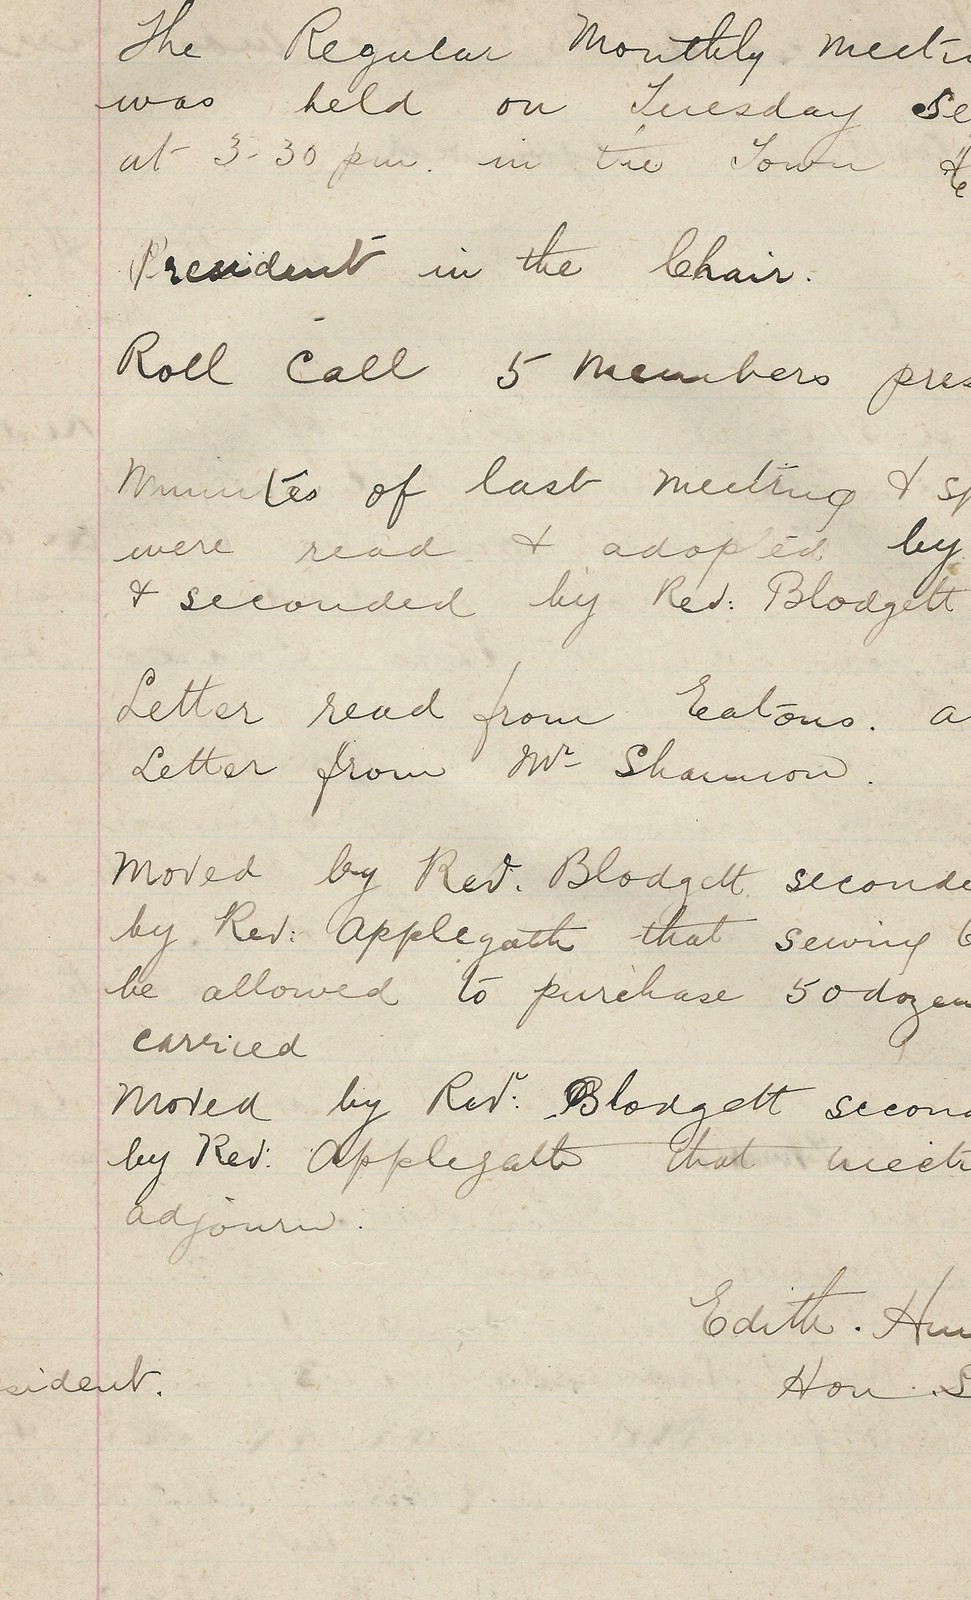 The Regular Monthly meeti
was held on Tuesday Se
at 3-30 pm. in the Town
President in the Chair.
Roll Call 5 Members pres
Minutes of last meeting & sp
were read & adopted by
& seconded by Rev: Blodgett
Letter read from Eatons. a
Letter from Mr Shannon.
Moved by Rev. Blodgett seconde
by Rev: Applegath that sewing
be allowed to purchase 50 dozen
carried
Moved by Rev: Blodgett second
by Rev: Applegath that meeti
adjourn.
Edith. Hu
sident. Hon. S